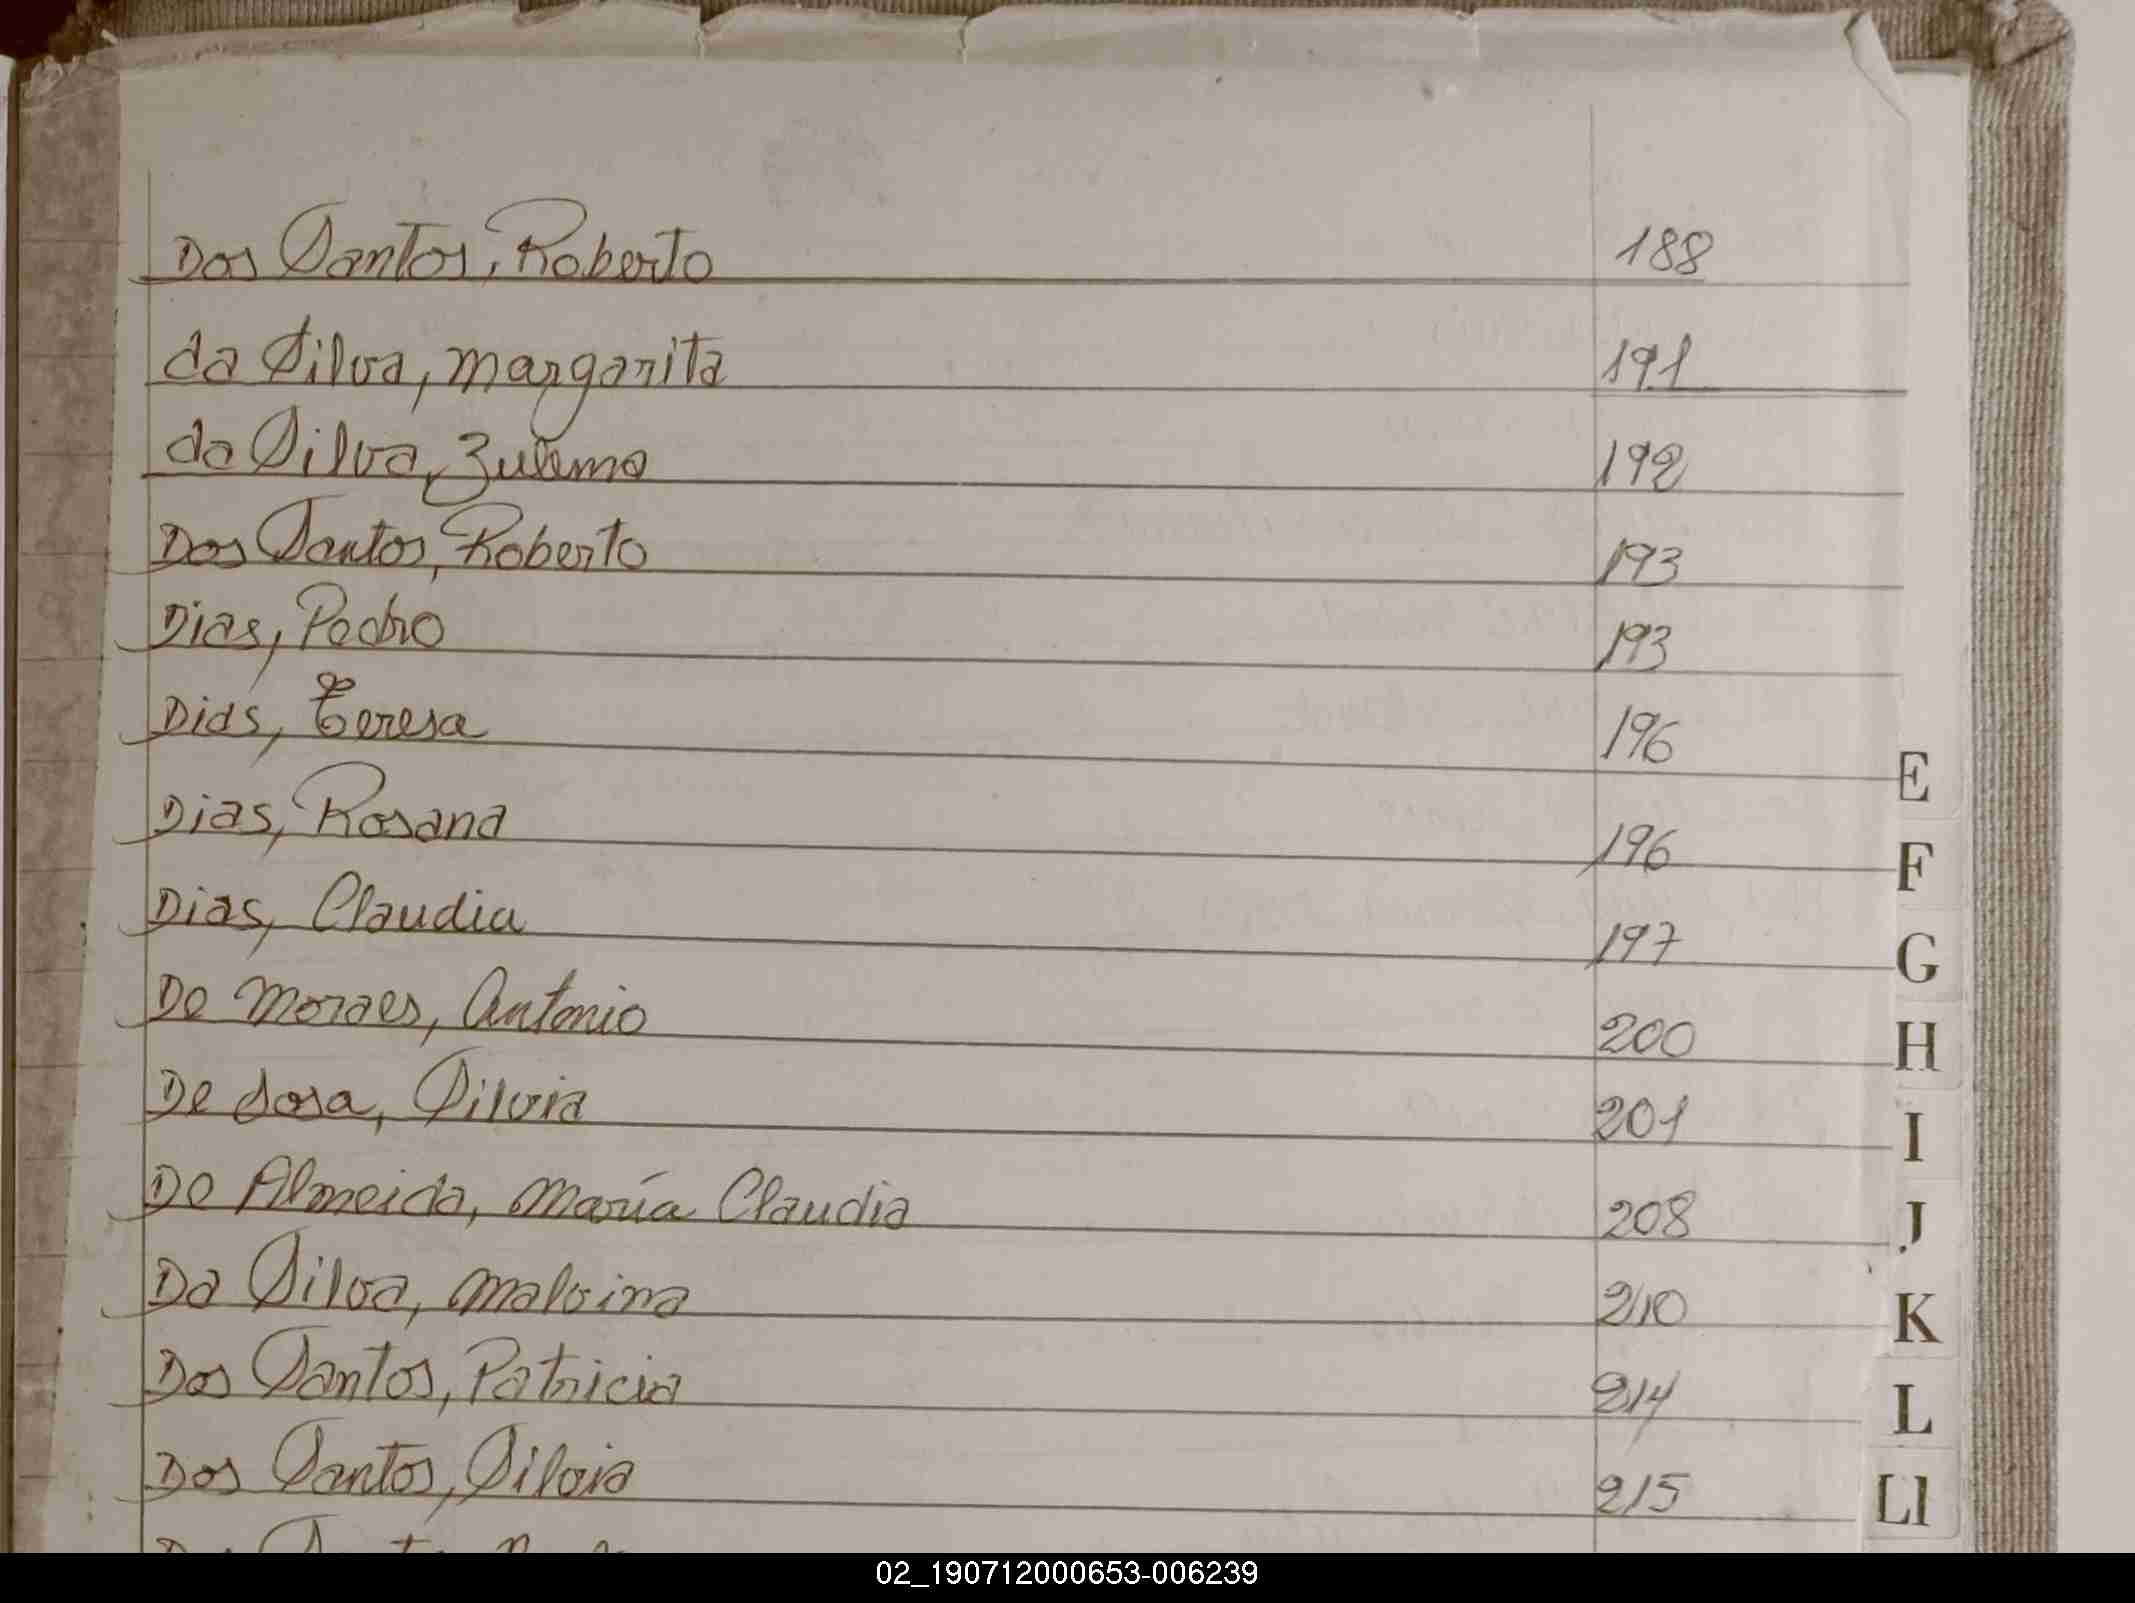 Dos Santos, Roberto 188
da Silva, Margarita 191
da Silva, Zulema 192
Dos Santos, Roberto 193
Dias, Pedro 193
Dias, Teresa 196
Dias, Rosana 196
E
Dias, Claudia 197
F
G
De Moraes, Antonio 200
H
De Sosa, Silvia 201
I
De Almeida, María Claudia 208
J
Da Silva, Malvina 210
K
Dos Santos, Patricia 214
L
Dos Santos, Silvia 215
Ll
02_190712000653-006239